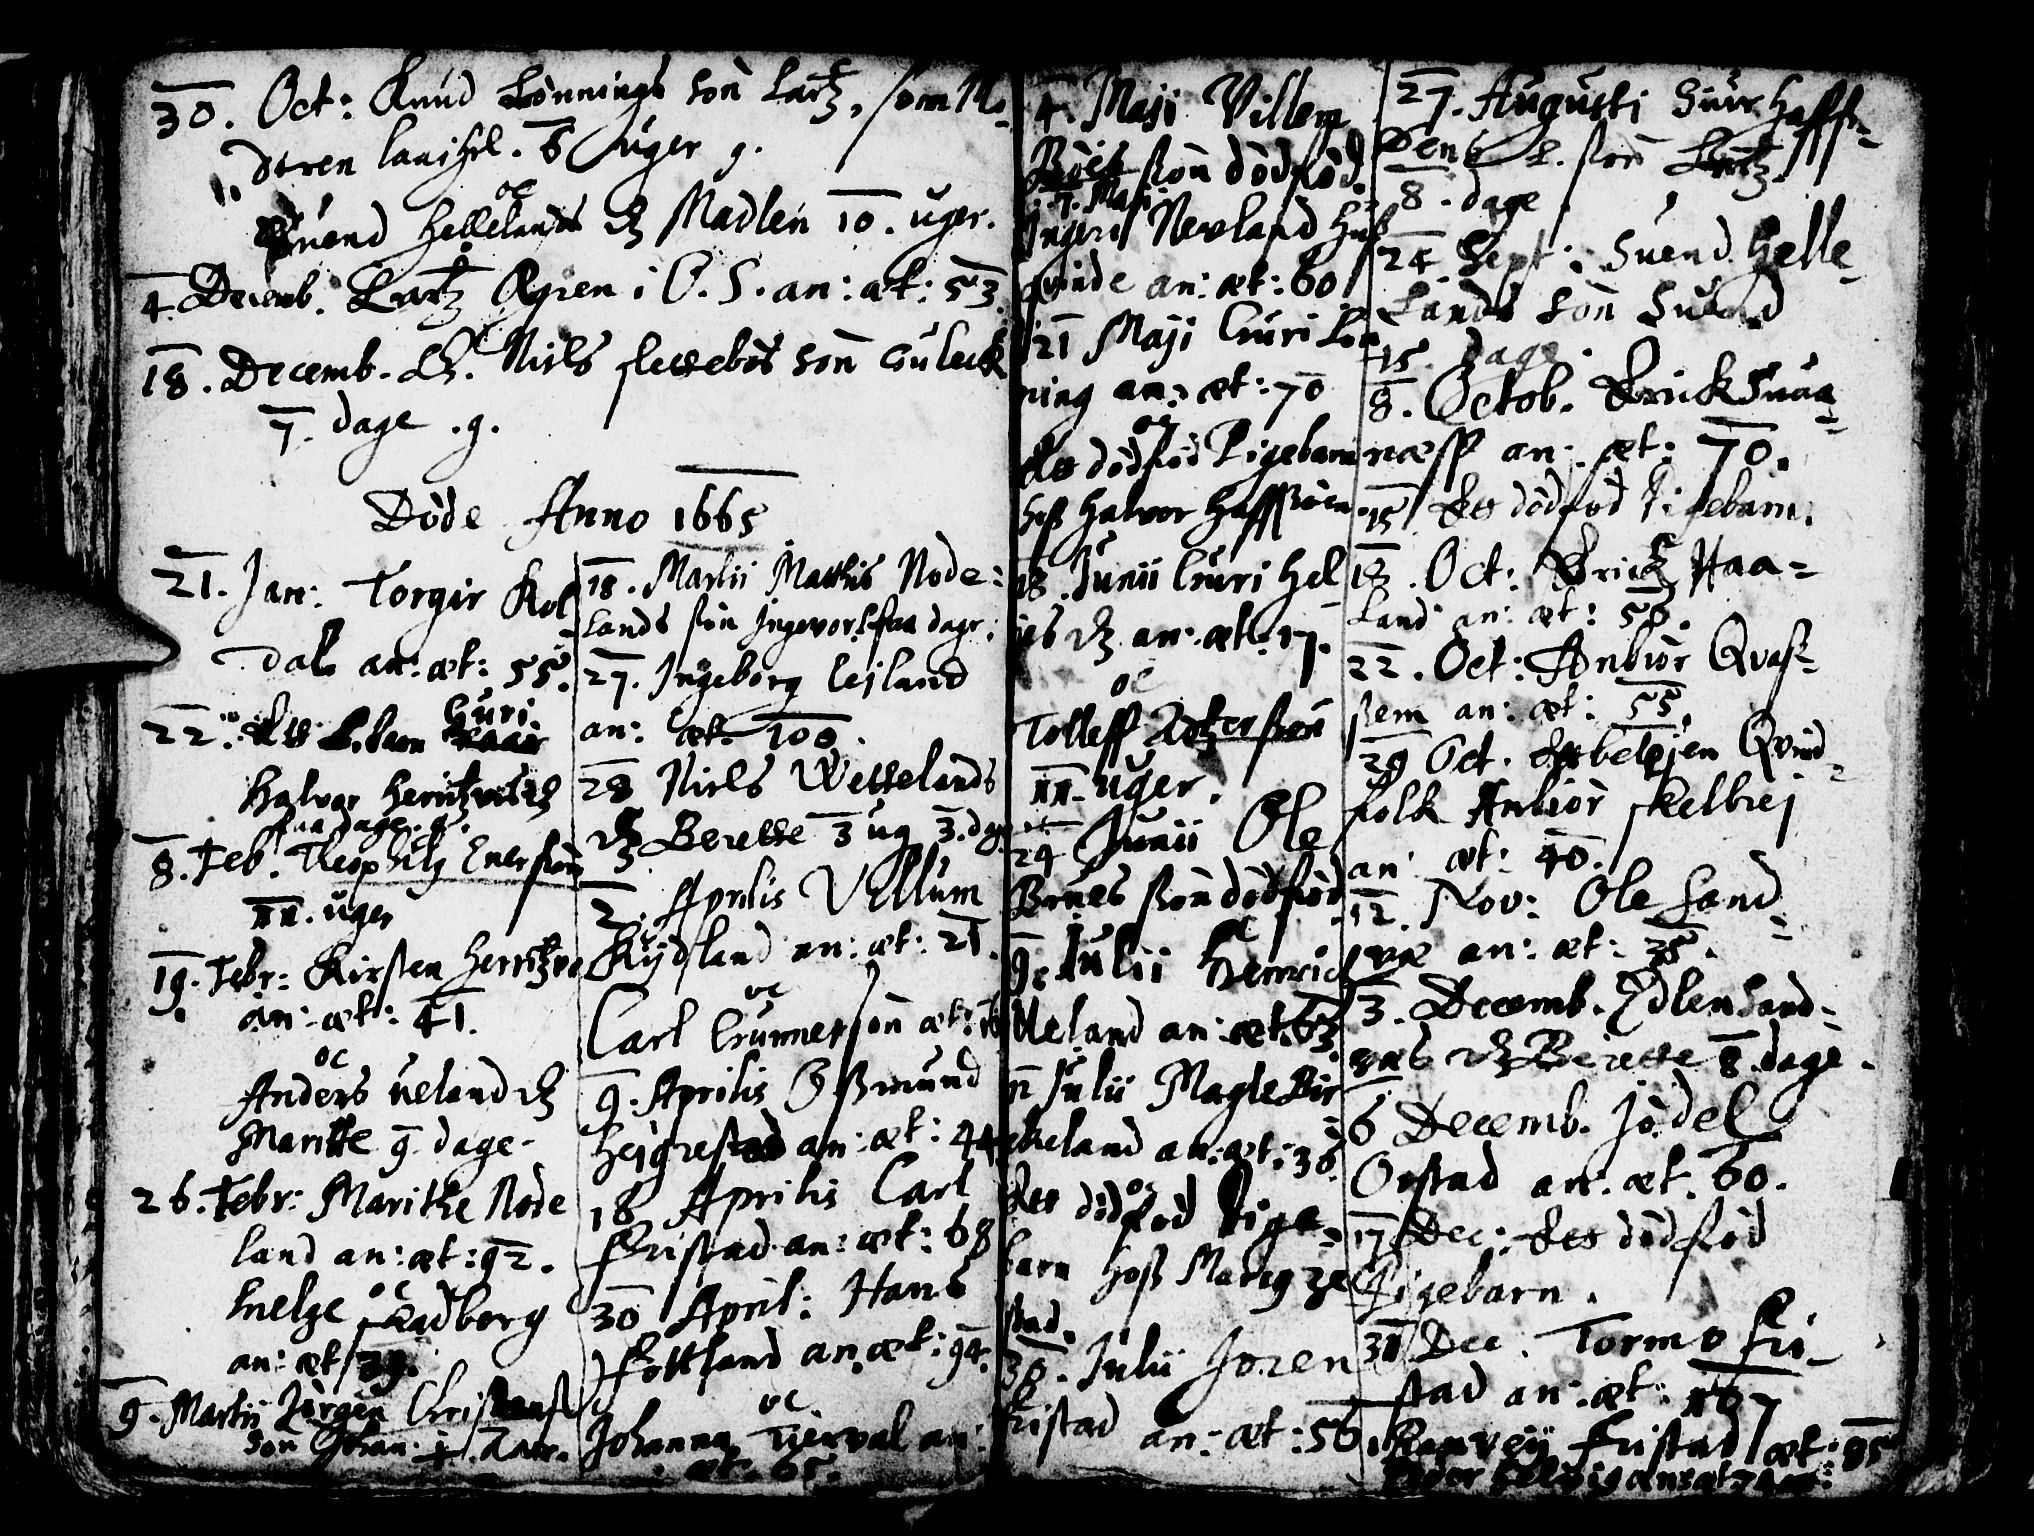 30. Oct: Knud Lønnings Søn Lartz, som Mo-
deren laa ihel. 6 uger g.
oc
Svend Hellelands Madlen 10. uger.
4. Decemb. Lartz Ægren i O. S. an: æt: 53.
18. Decemb. Niels slettebøs Søn Gulleck
7. dage .g.
Døde Anno 1665
21. Jan: Torgir Kol
dal an: æt: 55.
22. Guri
Halvor
faa dage. g.
8. Feb. Theophilus søn
11. uger
19. Febr: Kirsten
an: æt: 41.
oc
Anders ueland
Maritte 9 dage.
26. Febr: Marithe Node
land an: æt: 92.
oc
Helge Kadberg
an: æt 39.
9. Martii Jørgen
Søn Johan: 1. Aar.
18. Martii Mathis Node:
lands søn Ingevor faa dage.
27. Ingeborg Leiland
an: æt: 100.
28 Niels Wettelands
Berette 3 ug 3. dag
2. Aprilis Villum
Kydland an: æt: 21.
oc
Carl Gunnersøn æt:
9. Aprilis Osmund
Hejgrestad an: æt: 44
18 Aprilis Carl
Fristad an: æt: 68
30 April: Hans
Fottland an. æt: 94.
oc
Johanna an:
æt. 65.
4. Maji Villem
Bøes søn dødfød.
7. Maji
Ingeri Nevland Huß
qvinde an: æt: 60
21 Maji Guri Løn
ning an: æt: 70
oc
Et dødfød Pigebarn
hoß Halvor
18. Junii Guri Hel
an: æt: 17.
oc
Tolleff søn
11. uger.
24 Junii Ole
Bøes søn dødfød
9. Julii Henric
Ueland an: æt: 63.
11 Julii Magle Bir
keland an: æt: 36.
oc
Et dødfød Pige-
barn hoß
stad.
30. Julii Joren
Fristad an: æt: 56
27. Augusti Siur Haffs-
søn Lartz.
8. dage
24 Sept: Svend Helle-
Lands Søn Svend
15. dage.
8. Octob. Erick Svaa-
næss an: æt: 70.
15 Et dødfød Pigebarn.
18. Oct: Erick Haa-
land an: æt: 50.
22. Oct: Anbiør Qvas-
sem an: æt: 55.
29 Oct. Qvind-
folk Anbiør skelbrej
an: æt: 40.
12. Nov: Ole Sand-
an: æt: 35.
3. Decemb. Edlen Sand-
Berette 8. dage.
6 Decemb. Jødel
Orstad an: æt. 60.
17 Dec: Et dødfød
Pigebarn.
31 Dec. Tormo Fri-
stad an: æt:
Ranveij Fristad æt: 85